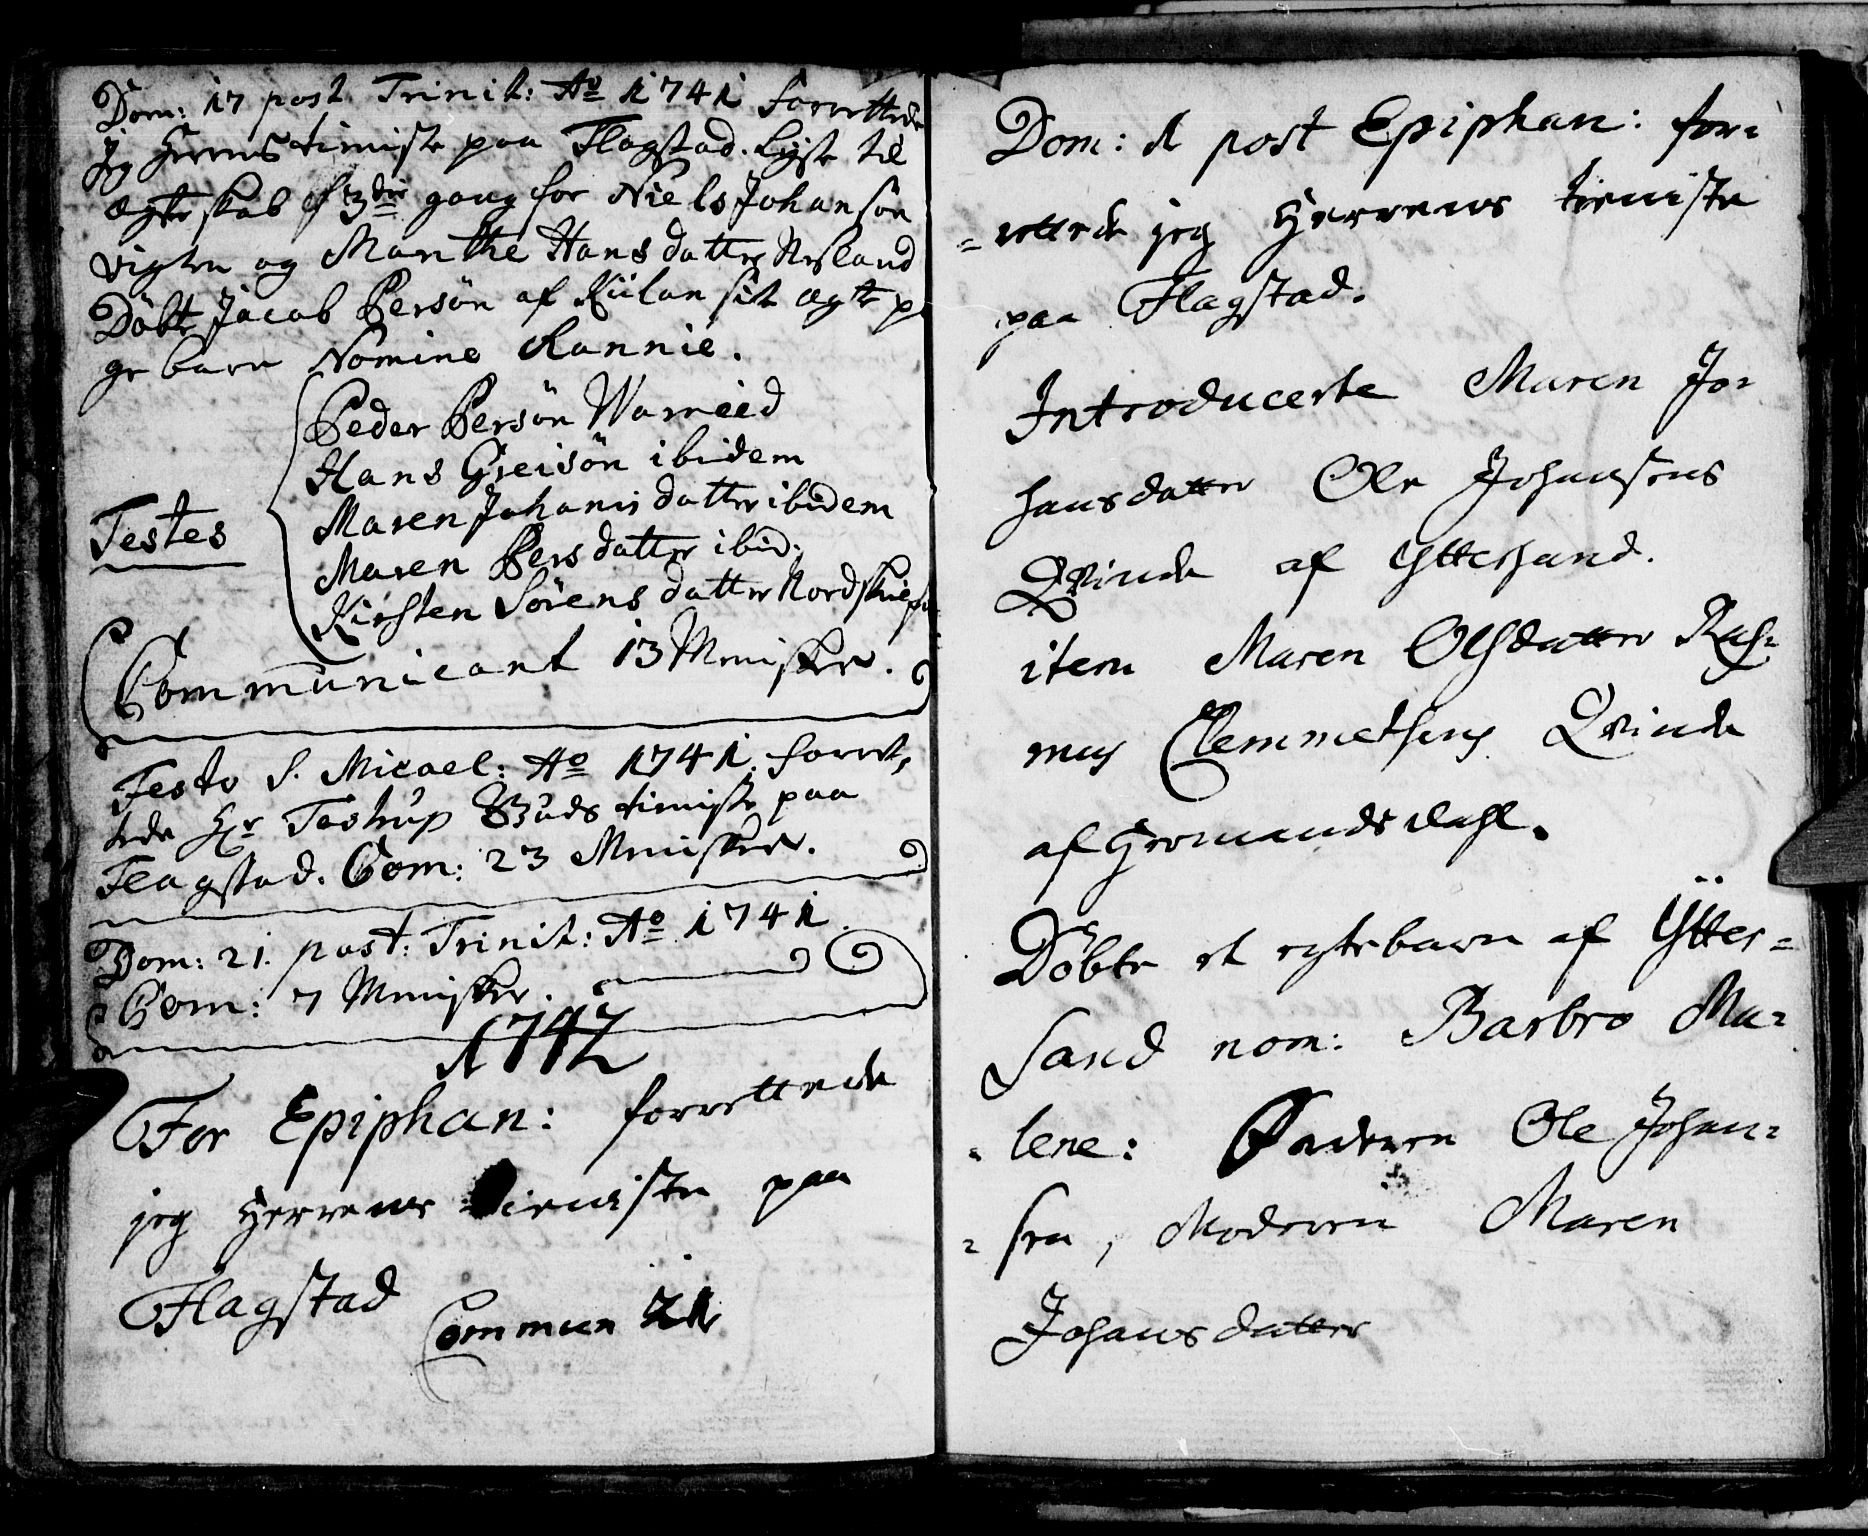 Dom: 17 post Trinit: Ao 1741 forrettede
jeg Herrens tieniste paa Flagstad. Lyste til
ægteskab 3die gang for Niels Johansøn
Vigten og Marithe Hansdatter Nesland
Døbte Jacob Persøn af Kiilan sit ægte pi
ge barn Nomine Rannie.
Peder Persøn Wareiid
Hans Greisøn ibidem
Maren Johanisdatter ibidem
Testes
Maren Persdatter ibid:
Kirsten Sørensdatter
Communicant 13 Mennisker.
Festo S. Micael: Ao 1741. forret,
tede Hr Tostrup Guds tieniste paa
Flagstad. Com: 23 Mennisker.
Dom: 21. post: Trinit: Ao 1741.
Com: 7 Mennisker.
1742
For Epiphan: forrettede
jeg Herrens tieniste paa
Flagstad Commun 21
Dom: 1 post Epiphan: for=
=rettede jeg Herrens tieniste
paa Flagstad.
Introducerte Maren Jo=
hansdatter Ole Johansens
Qvinde af Yttersand.
item Maren Olsdatter Ras=
mus Clemmetsens Qvinde
af Hermandsdahl.
Døbte et egte barn af Ytter=
Sand nom: Barbro Ma=
=lene: Faderen Ole Johan=
=sen, Moderen Maren
Johansdatter